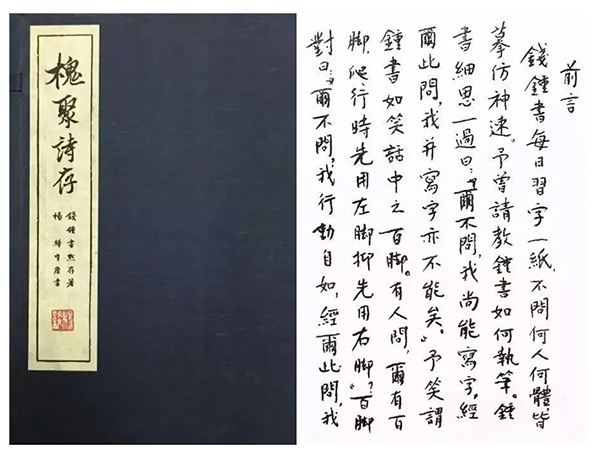 槐聚詩存
錢鍾書默存著
楊絳季康書
前言
錢鍾書每日習字一紙，不問何人何體，皆
摹仿神速。予曾請教鍾書如何執筆。鍾
書細思一過曰：『爾不問，我尚能寫字，經
爾此問，我并寫字亦不能矣。』予笑謂
鍾書如笑話中之百腳。有人問，爾有百
腳，爬行時先用左腳抑先用右腳？百腳
對曰：『爾不問，我行動自如，經爾此問，我